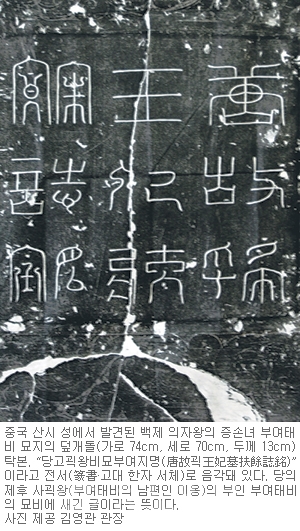 중국 산시 성에서 발견된 백제 의자왕의 증손녀 부여태
비 묘지의 덮개돌(가로 74cm, 세로 70cm, 두께 13cm)
탁본. “당고괵왕비묘부여지명(唐故괵王妃墓扶餘誌銘)”
이라고 전서(篆書·고대 한자 서체)로 음각돼 있다. 당의
제후 사괵왕(부여태비의 남편인 이옹)의 부인 부여태비
의 묘비에 새긴 글이라는 뜻이다.
사진 제공 김영관 관장